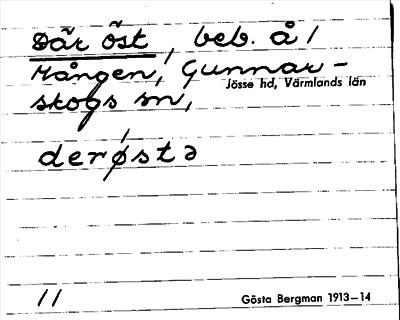 Där öst, beb. å /
Mången, Gunnar-
skogs sn,
Jösse hd, Värmlands län
derøstə
11
Gösta Bergman 1913–14